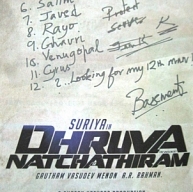 6. Salim
7. Javed
8. Rayo
9. Ghauri
10. Venugopal
11. Cyrus
12. ? Looking for my 12th man!
Basement
SURIYA IN
DHRUVA
NATCHATHIRAM
GAUTHAM VASUDEV MENON A.R. RAHMAN